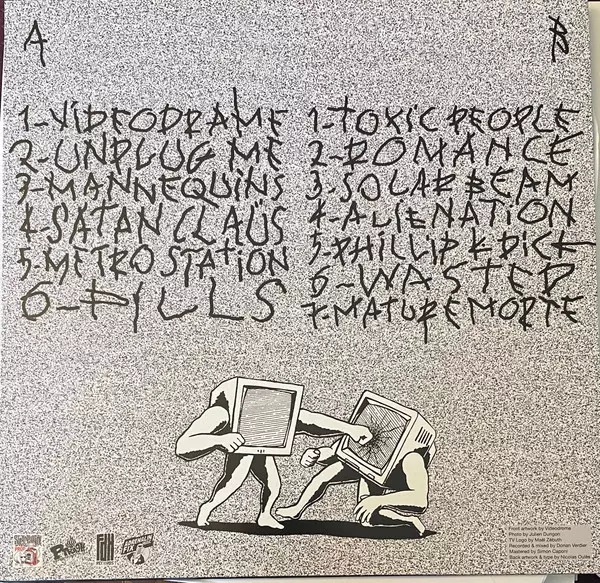 A
1-VIDEODRAME
2-UNPLUG ME
3-MANNEQUINS
4-SATAN CLAÜS
5-METRO STATION
6-PILLS
B
1-TOXIC PEOPLE
2-ROMANCE
3-SOLAR BEAM
4-ALIENATION
5-PHILLIP K DICK
6-WASTED
7-NATURE MORTE
Photo by Julien Dumgon
TV Logo by Maël Zébuth
Recorded & mixed by Dorian Verdier
Mastered by Simon Caponi
Back artwork & type by Nicolas Oulès